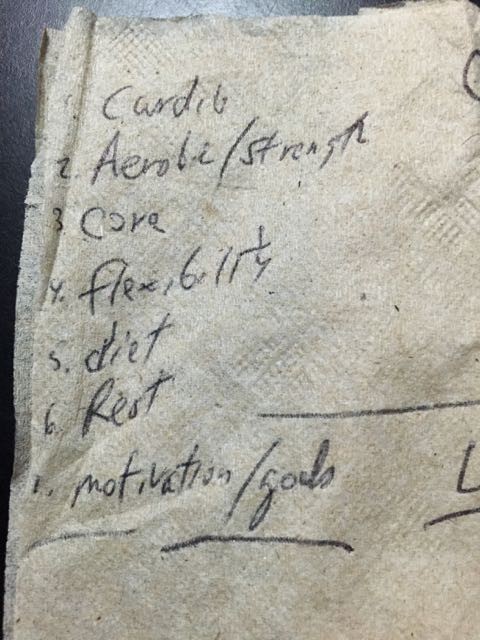 1 Cardio
2. Aerobic/strength
3 Core
4. flexibility
5. diet
6. Rest
1. motivation/goals
L